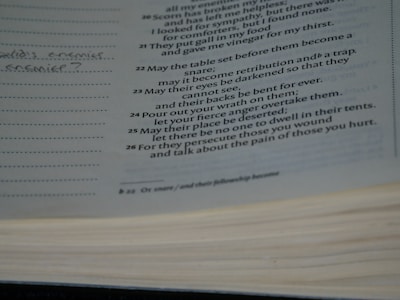 all my enemies
20 Scorn has broken my
and has left me helpless;
I looked for sympathy, but there was
for comforters, but I found none.
21 They put gall in my food
and gave me vinegar for my thirst.
22 May the table set before them become a
snare;
may it become retribution and a trap.
23 May their eyes be darkened so that they
cannot see,
and their backs be bent for ever.
24 Pour out your wrath on them;
let your fierce anger overtake them.
25 May their place be deserted;
let there be no one to dwell in their tents.
26 For they persecute those you wound
and talk about the pain of those you hurt.
b 22 Or snare / and their fellowship become
enemies
enemies?